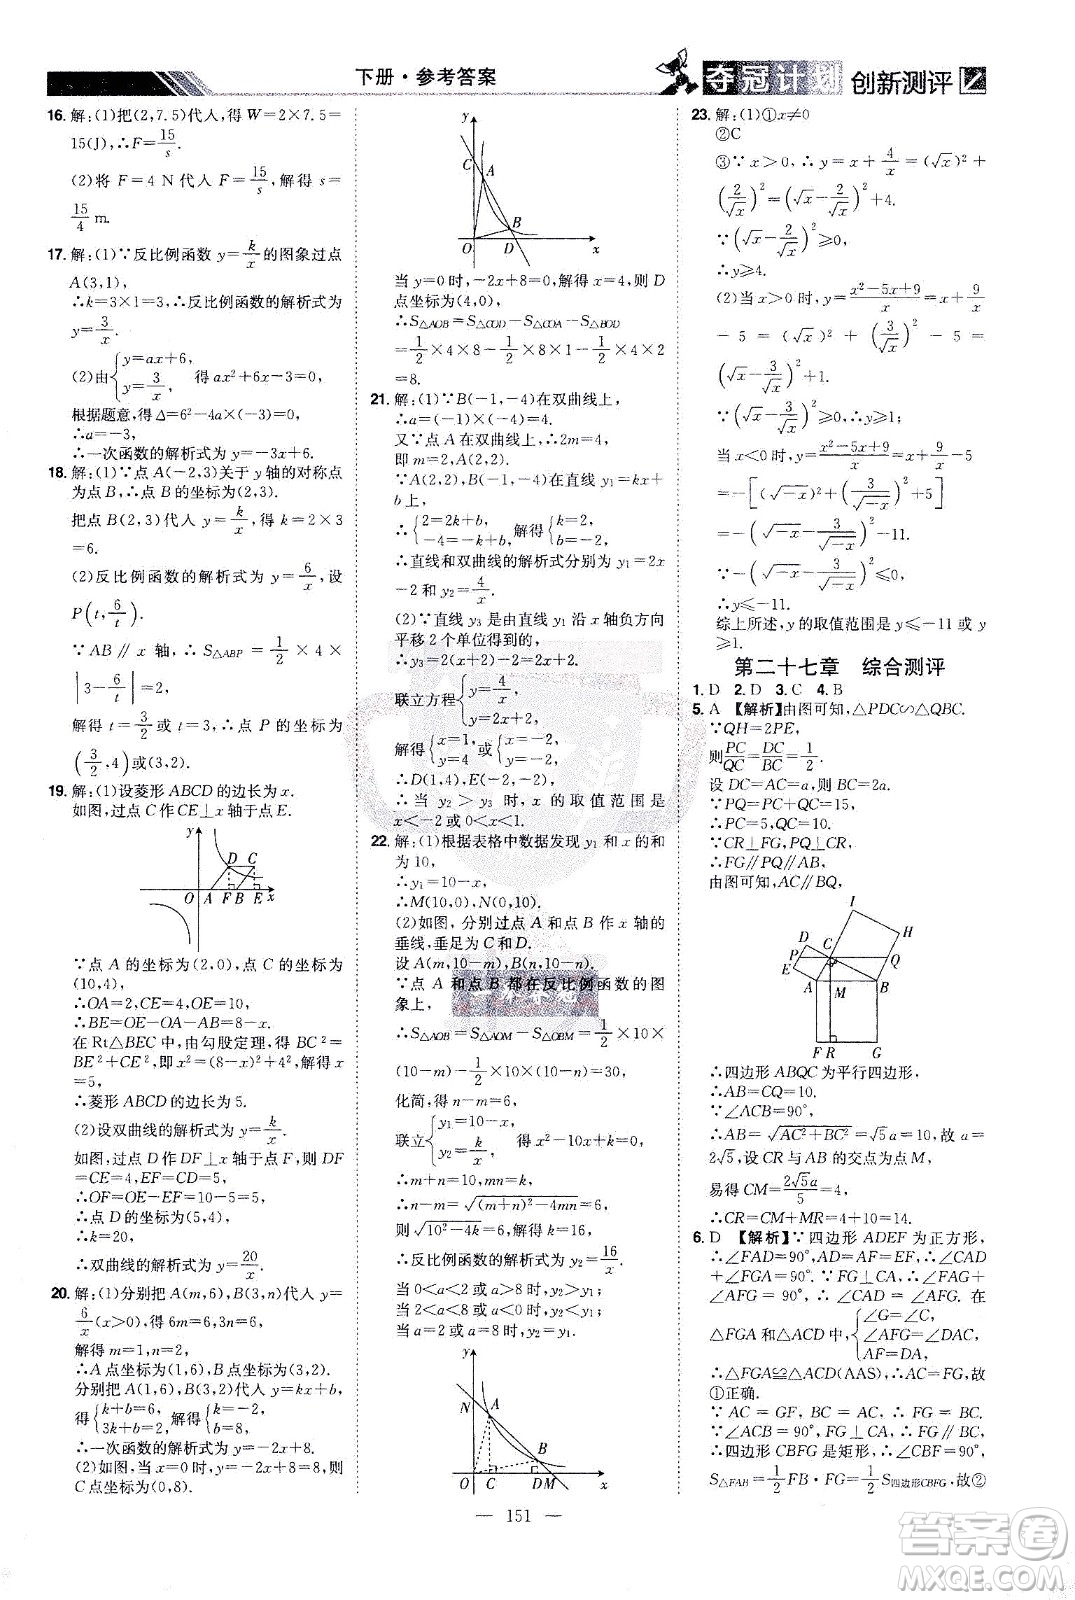 下册·参考答案
夺冠计划 创新测评
16. 解:(1)把(2,7.5)代入,得 W=2×7.5=
15(J),∴F=15/s.
(2)将 F=4 N代入 F=15/s,解得 s=
15/4 m.
17. 解:(1)∵反比例函数 y=k/x 的图象过点
A(3,1),
∴k=3×1=3,∴反比例函数的解析式为
y=3/x.
(2)由{y=ax+6, y=3/x 得ax²+6x-3=0,
根据题意,得Δ=6²-4a×(-3)=0,
∴a=-3,
∴一次函数的解析式为y=-3x+6.
18. 解:(1)∵点A(-2,3)关于y轴的对称点
为点B,∴点B的坐标为(2,3).
把点B(2,3)代入 y=k/x,得 k=2×3
=6.
(2)反比例函数的解析式为 y=6/x,设
P(t,6/t).
∵AB∥x 轴,∴S△ABP=1/2×4×
|3-6/t|=3,
解得 t=3/2 或 t=6,∴点 P 的坐标为
19. 解:(1)设菱形ABCD的边长为x.
如图,过点C作CE⊥x轴于点E.
y
D C
O A F B E x
∵点 A 的坐标为(2,0),点 C 的坐标为
(10,4),
∴OA=2,CE=4,OE=10,
∴BE=OE-OA-AB=8-x.
在Rt△BEC中,由勾股定理,得BC²=
BE²+CE²,即x²=(8-x)²+4²,解得x
=5,
∴菱形ABCD的边长为5.
(2)设双曲线的解析式为y=k/x.
如图,过点D作DF⊥x轴于点F,则DF
=CE=4,EF=DC=5,
∴OF=OE-EF=10-5=5,
∴点D的坐标为(5,4),
∴k=20,
∴双曲线的解析式为y=20/x.
20. 解:(1)分别把A(m,6),B(3,n)代入y=
6/x(x>0),得6m=6,3n=6,
解得m=1,n=2,
∴A点坐标为(1,6),B点坐标为(3,2).
分别把A(1,6),B(3,2)代入y=kx+b,
得{k+b=6, 3k+b=2, 解得{k=-2, b=8,
∴一次函数的解析式为y=-2x+8.
(2)如图,当x=0时,y=-2x+8=8,则
C点坐标为(0,8).
y
C
A
B
O D x
当y=0时,-2x+8=0,解得x=4,则D
点坐标为(4,0),
∴S△AOB=S△COD-S△COA-S△BOD
=1/2×4×8-1/2×8×1-1/2×4×2
=8.
21. 解:(1)∵B(-1,-4)在双曲线上,
∴a=(-1)×(-4)=4.
又∵点A在双曲线上,∴2m=4,
即m=2,A(2,2).
∵A(2,2),B(-1,-4)在直线y₁=kx+
b上,
∴{2=2k+b, -4=-k+b, 解得{k=2, b=-2.
∴直线和双曲线的解析式分别为y₁=2x
-2和y₂=4/x.
(2)∵直线y₃是由直线y₁沿x轴负方向
平移2个单位得到的,
∴y₃=2(x+2)-2=2x+2.
联立方程{y=4/x, y=2x+2,
解得{x=1, y=4 或{x=-2, y=-2,
∴D(1,4),E(-2,-2),
∴当 y₂>y₃ 时,x 的取值范围是
x<-2或0<x<1.
22. 解:(1)根据表格中数据发现y₁和x的和
为10,
∴y₁=10-x,
∴M(10,0),N(0,10).
(2)如图,分别过点A和点B作x轴的
垂线,垂足为C和D.
设A(m,10-m),B(n,10-n).
∵点A和点B都在反比例函数的图
象上,
∴S△AOB=S△AOM-S△OBM=1/2×10×
(10-m)-1/2×10×(10-n)=30,
化简,得n-m=6,
联立{y₁=10-x, y₂=k/x 得x²-10x+k=0,
∴m+n=10,mn=k,
∴n-m=√((m+n)²-4mn)=6,
则√(10²-4k)=6,解得k=16,
∴反比例函数的解析式为y₂=16/x.
当0<x<2或x>8时,y₂>y₁;
当2<x<8或x<0时,y₂<y₁;
当x=2或x=8时,y₂=y₁.
y
N
A
B
O C D M x
23. 解:(1)①x≠0
②C
③∵x>0,∴y=x+4/x=(√x)²+
(2/√x)²=(√x-2/√x)²+4.
∵(√x-2/√x)²≥0,
∴y≥4.
(2)当x>0时,y=(x²-5x+9)/x=x+9/x
-5=(√x)²+(3/√x)²-5=
(√x-3/√x)²+1.
∵(√x-3/√x)²≥0,∴y≥1;
当x<0时,y=(x²-5x+9)/x=x+9/x-5
=-[(√-x)²+(3/√-x)²+5]
=-(√-x-3/√-x)²-11.
∵-(√-x-3/√-x)²≤0,
∴y≤-11.
综上所述,y的取值范围是y≤-11或
y≥1.
第二十七章 综合测评
1. D 2. D 3. C 4. B
5. A 【解析】由图可知,△PDC∽△QBC.
则PC/QC=DC/BC=1/2.
设DC=AC=a,则BC=2a.
∵PQ=PC+CQ=15,∴CQ=10.
∵CR⊥FG,PQ⊥CR,
∴FG∥PQ∥AB.
由图可知,AC∥BQ,
I
H
D
P C Q
E
A M B
F R G
∴四边形ABQC为平行四边形,
∴AB=CQ=10.
∵∠ACB=90°,
∴AB=√(AC²+BC²)=√5a=10,故a=
2√5,设CR与AB的交点为点M,
易得CM=2√5a/5=4,
∴CR=CM+MR=4+10=14.
6. D 【解析】∵四边形ADEF为正方形,
∴∠FAD=90°,AD=AF=EF,∴∠CAD
+∠FAG=90°.∵FG⊥CA,∴∠FAG+
∠AFG=90°,∴∠CAD=∠AFG.在
△FGA和△ACD中,{∠G=∠C, ∠AFG=∠DAC, AF=DA,
∴△FGA≌△ACD(AAS),∴AC=FG,故
①正确.
∵AC=GF,BC=AC,∴FG=BC.
∵∠ACB=90°,FG⊥CA,∴FG∥BC,
∴四边形CBFG是矩形,∴∠CBF=90°,
S△FAB=1/2FB·FG=1/2S四边形CBFG,故②
— 151 —
答案圈
MXQE.COM